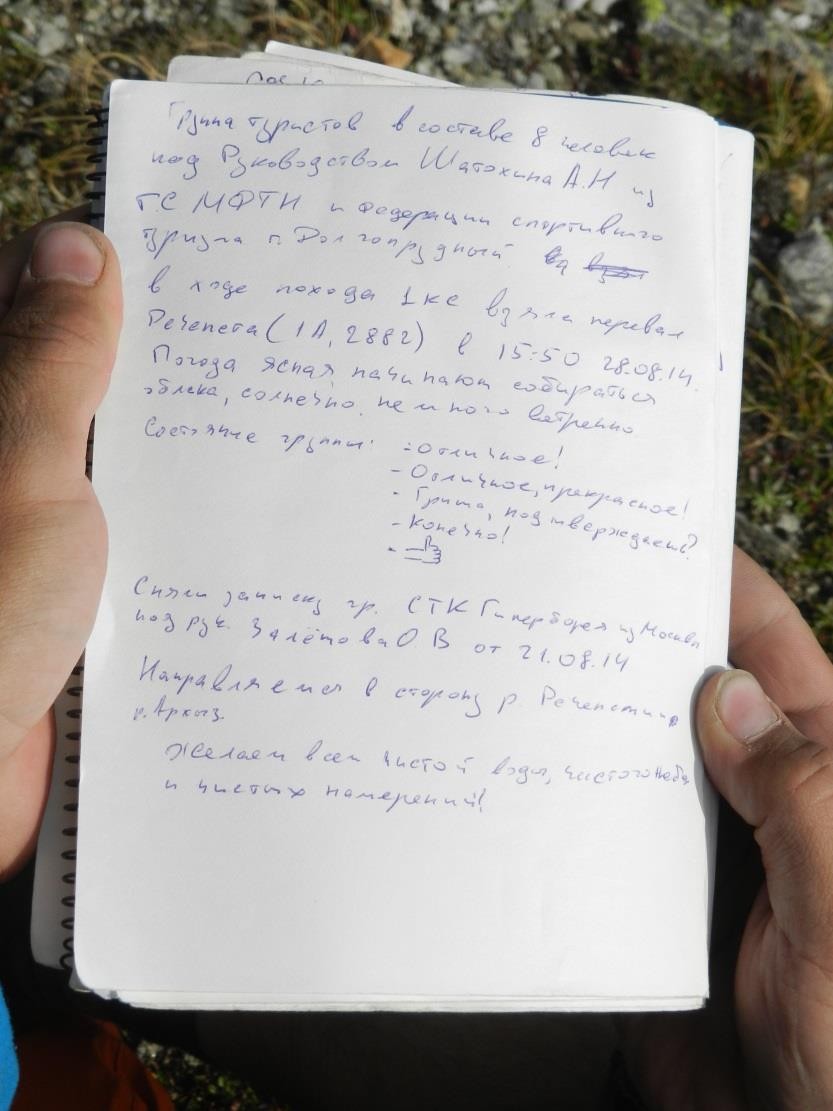 Группа туристов в составе 8 человек
под Руководством Шатохина А.Н из
Т.С МФТИ и Федерации спортивного
туризма г. Долгопрудный
в ходе похода 1кс взяла перевал
Речепста (1А, 2882) в 15:50 28.08.14.
Погода ясная начинают собираться
облака, солнечно, немного ветренно
Состояние группы: - Отличное!
- Отличное, прекрасное!
- Гриша, подтверждаешь?
- Конечно!
-
Сняли записку гр. СТК Гиперборея из Москвы
под рук. Залётова О В от 21.08.14
Направляемся в сторону р. Речепста и
р. Архыз.
Желаем всем чистой воды, чистого неба
и чистых намерений!